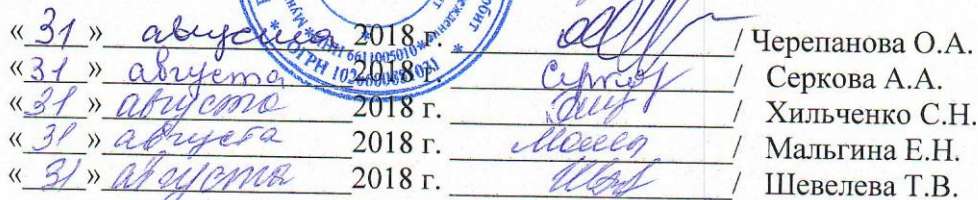 « 31 » августа 2018 г. / Черепанова О.А.
« 31 » августа 2018 г. Серков / Серкова А.А.
« 31 » августа 2018 г. / Хильченко С.Н.
« 31 » августа 2018 г. / Мальгина Е.Н.
« 31 » августа 2018 г. / Шевелева Т.В.